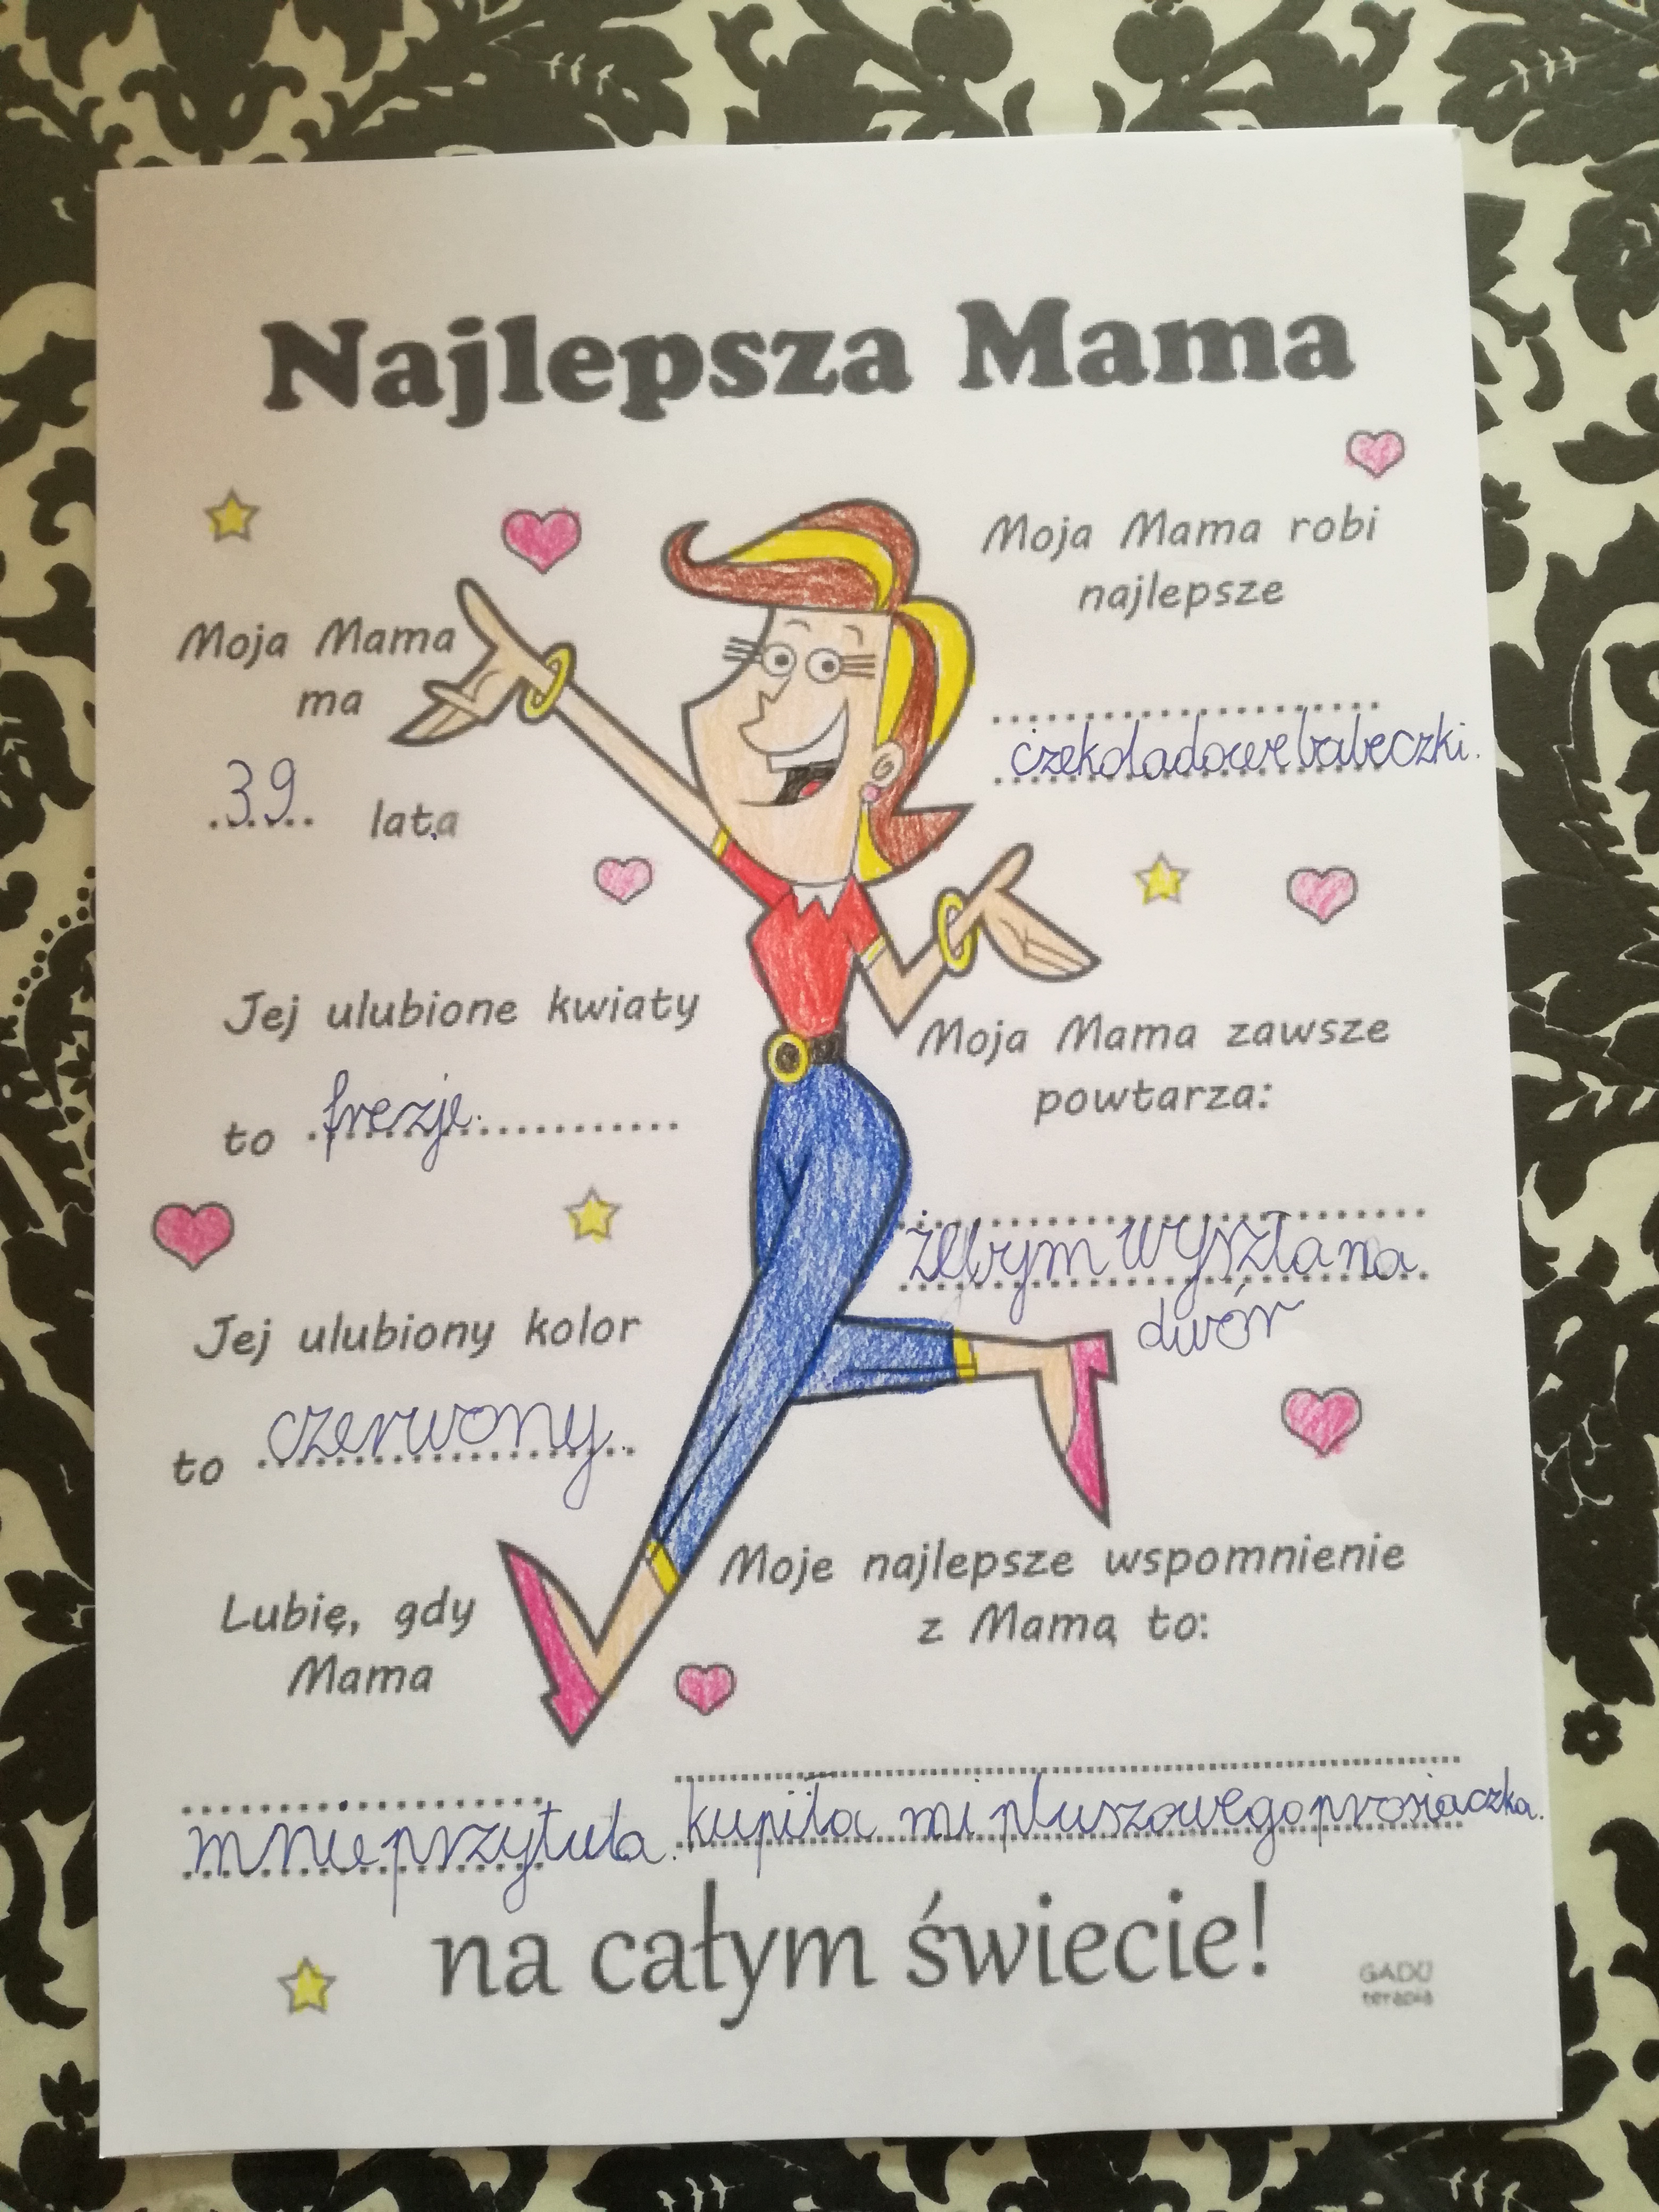 Najlepsza Mama
Moja Mama
ma
39 lata
Jej ulubione kwiaty
to frezje.
Jej ulubiony kolor
to czerwony.
Lubię, gdy
Mama
mnie przytula.
Moja Mama robi
najlepsze
czekoladowe babeczki.
Moja Mama zawsze
powtarza:
żebym wyszła na
dwór
Moje najlepsze wspomnienie
z Mamą to:
kupiła mi pluszowego prosiaczka.
na całym świecie!
GADU
terapia